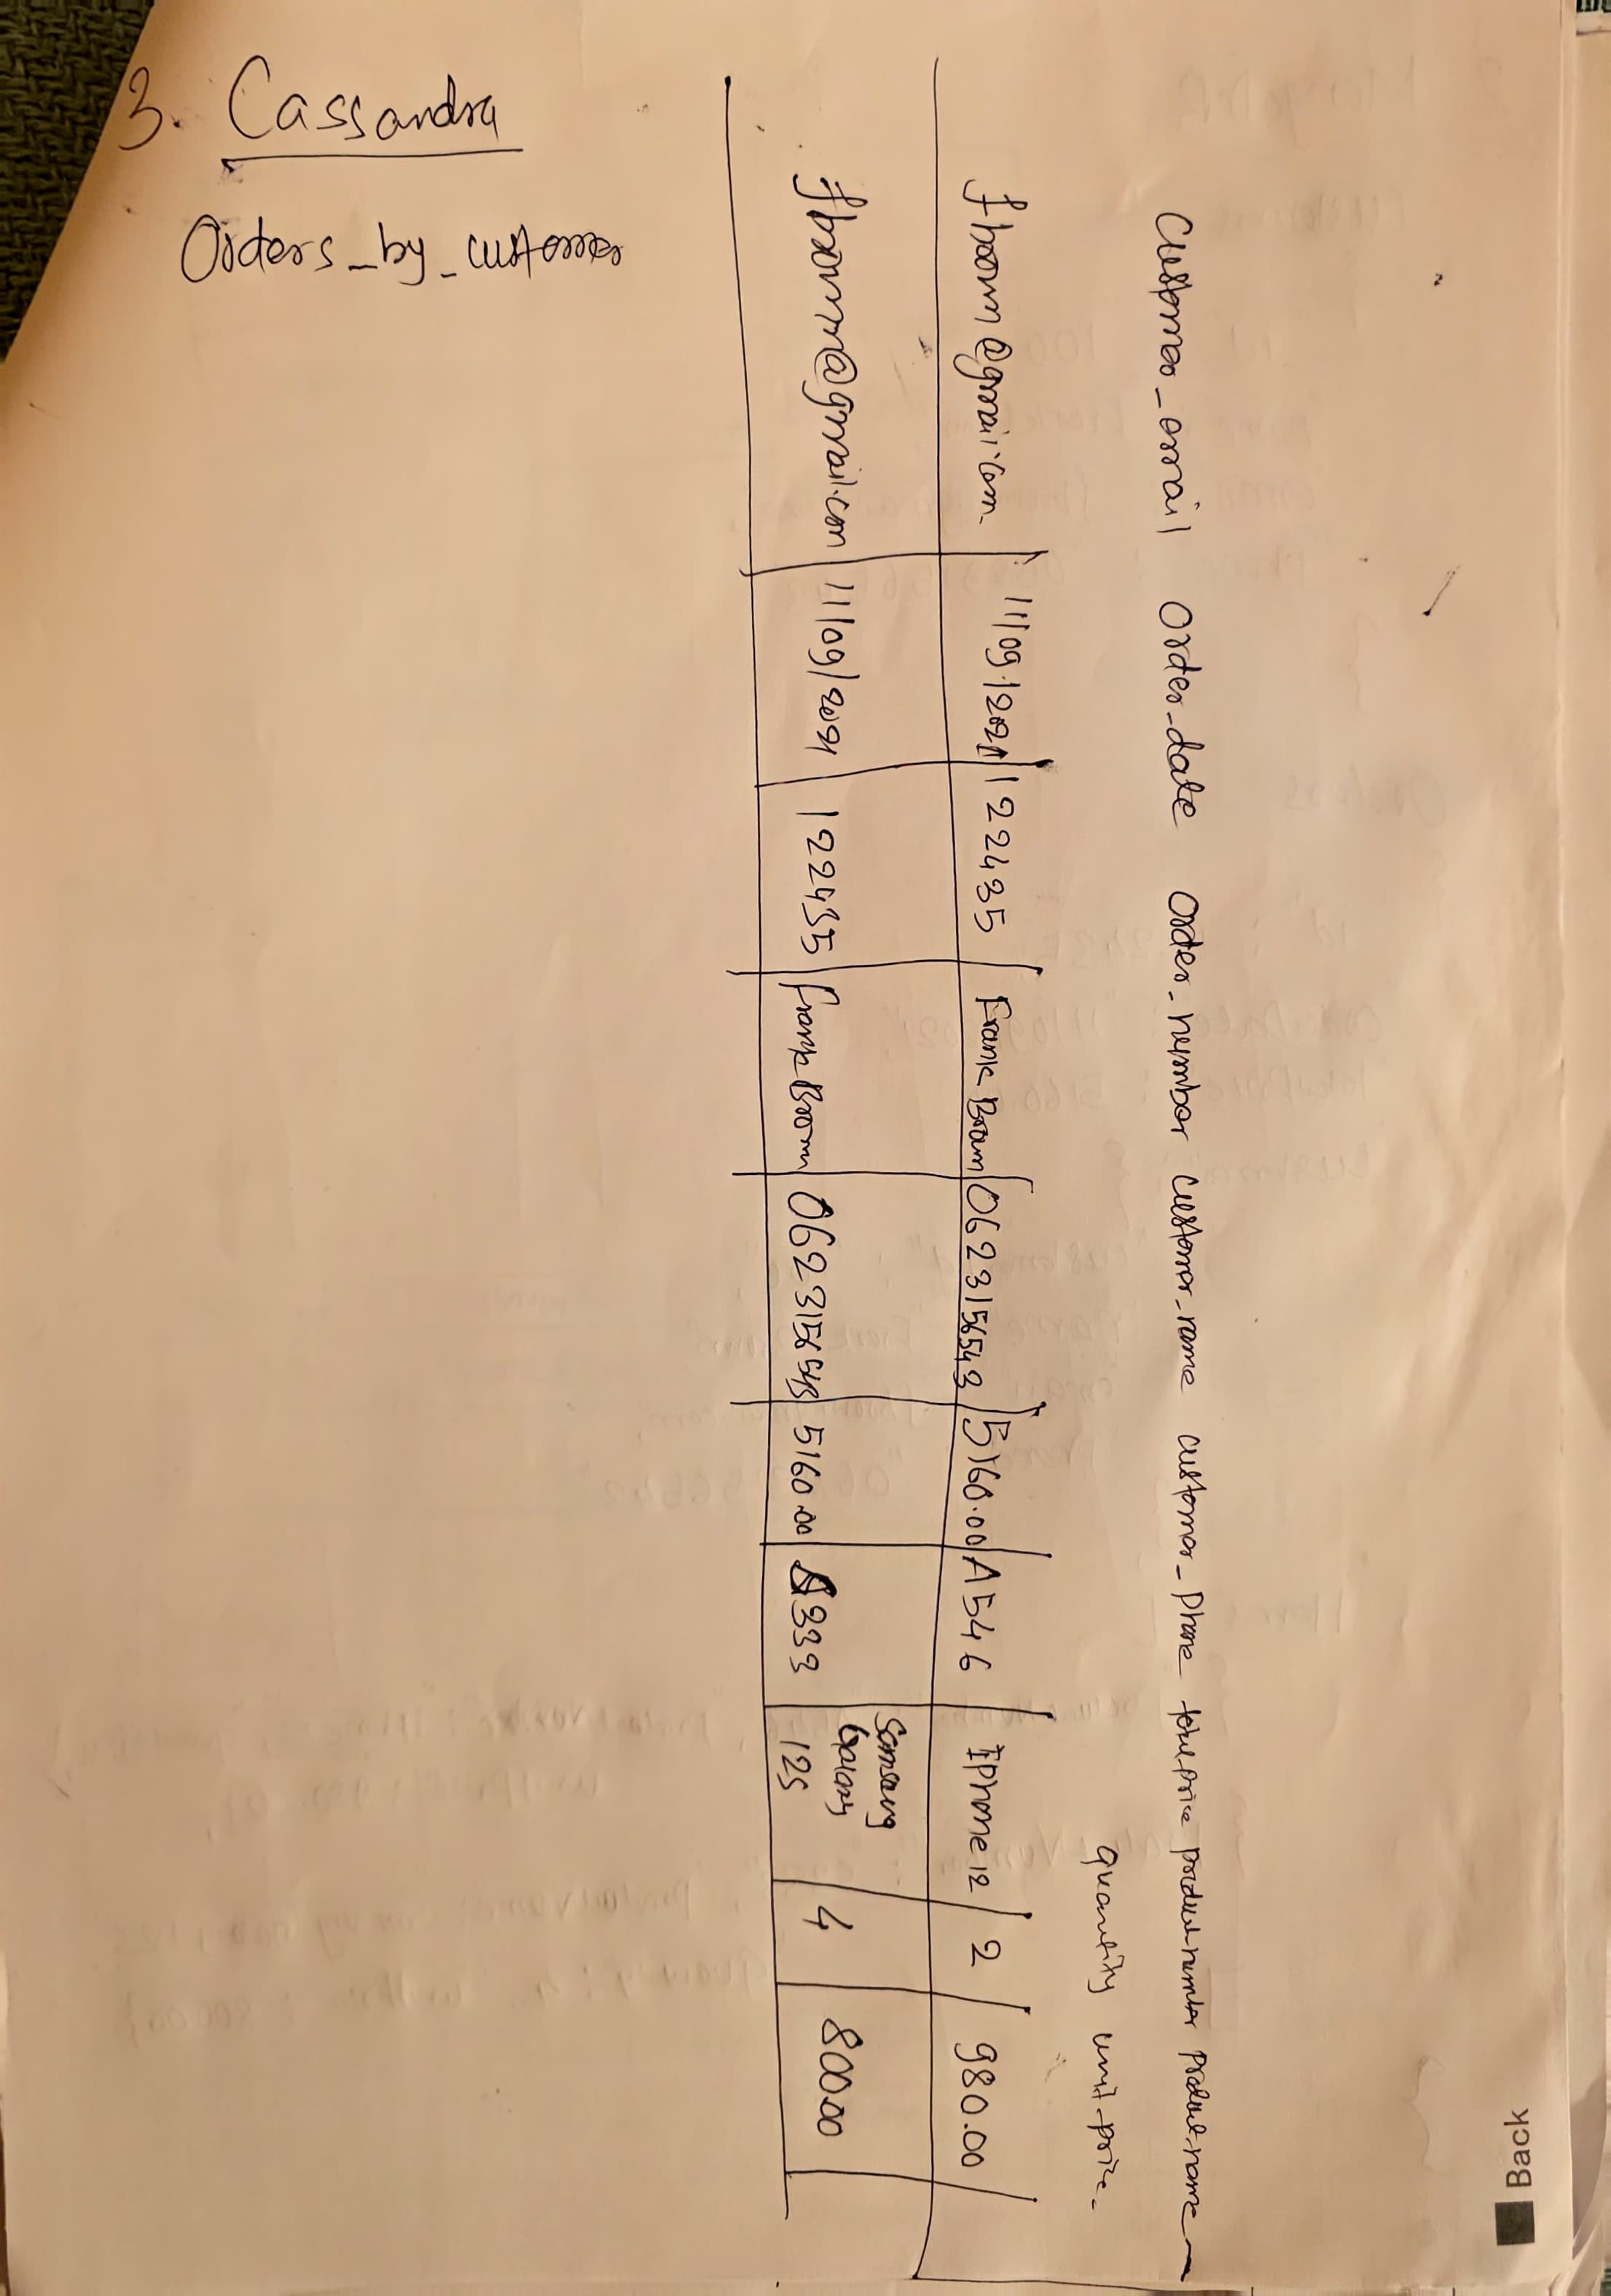 3. Cassandra
Orders_by_customer
Customer_email Order_date Order_number customer_name customer_Phone total_price product_number Product_name
quantity unit_price
fbown@gmail.com 11/09/2021 122435 Frank Brown 0623156543 5160.00 A546 Iphone 12 2 980.00
fbown@gmail.com 11/09/2021 122435 Frank Brown 0623156543 5160.00 333 Samsung Galaxy 12s 4 800.00
Back